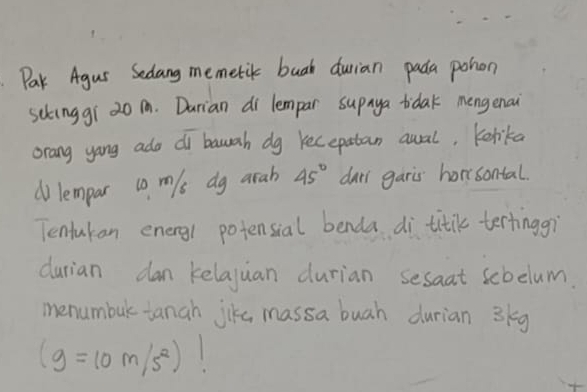 Pak Agus Sedang memetik buah durian pada pohon
setinggi 20 m. Durian di lempar supaya tidak mengenai
orang yang ada di bawah dg kecepatan awal. Ketika
di lempar 10 m/s dg arah 45° dari garis horisontal.
Tentukan energi potensial benda di titik tertinggi
durian dan kelajuan durian sesaat sebelum
menumbuk tanah jika massa buah durian 3kg
(g = 10 m/s²) !